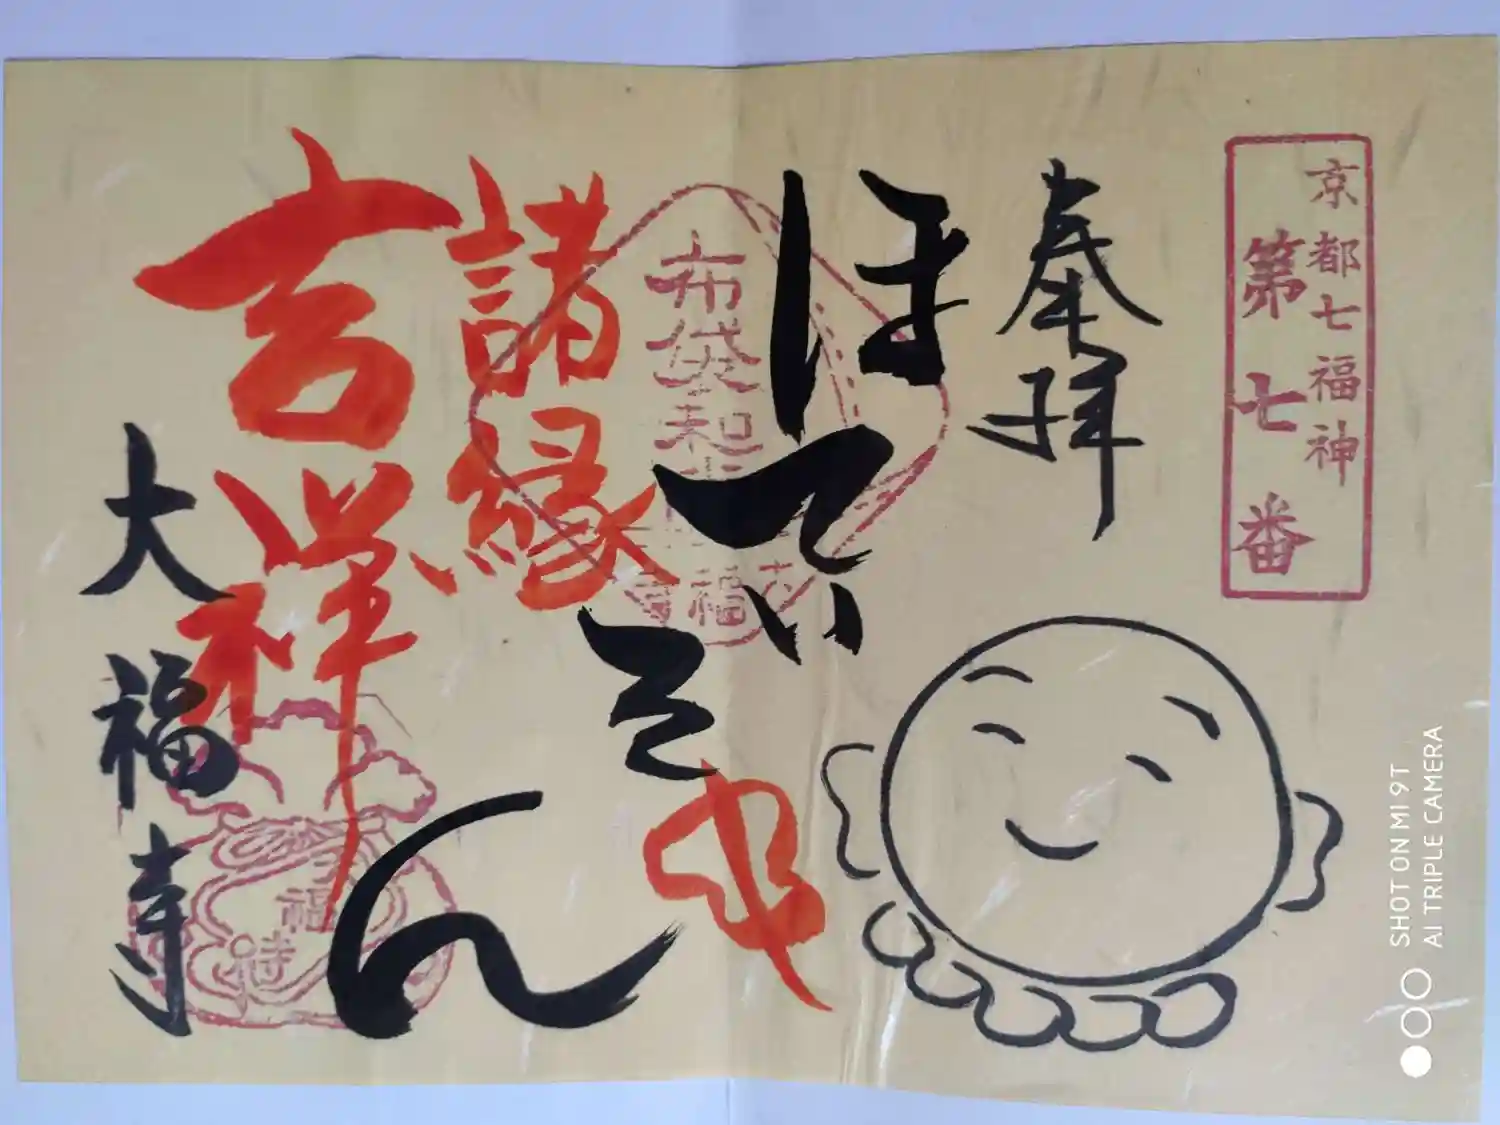 京都七福神
第七番
奉拝
ほていそん
布袋和尚
諸縁
吉祥
大福寺
福
寺
SHOT ON MI 9T
AI TRIPLE CAMERA